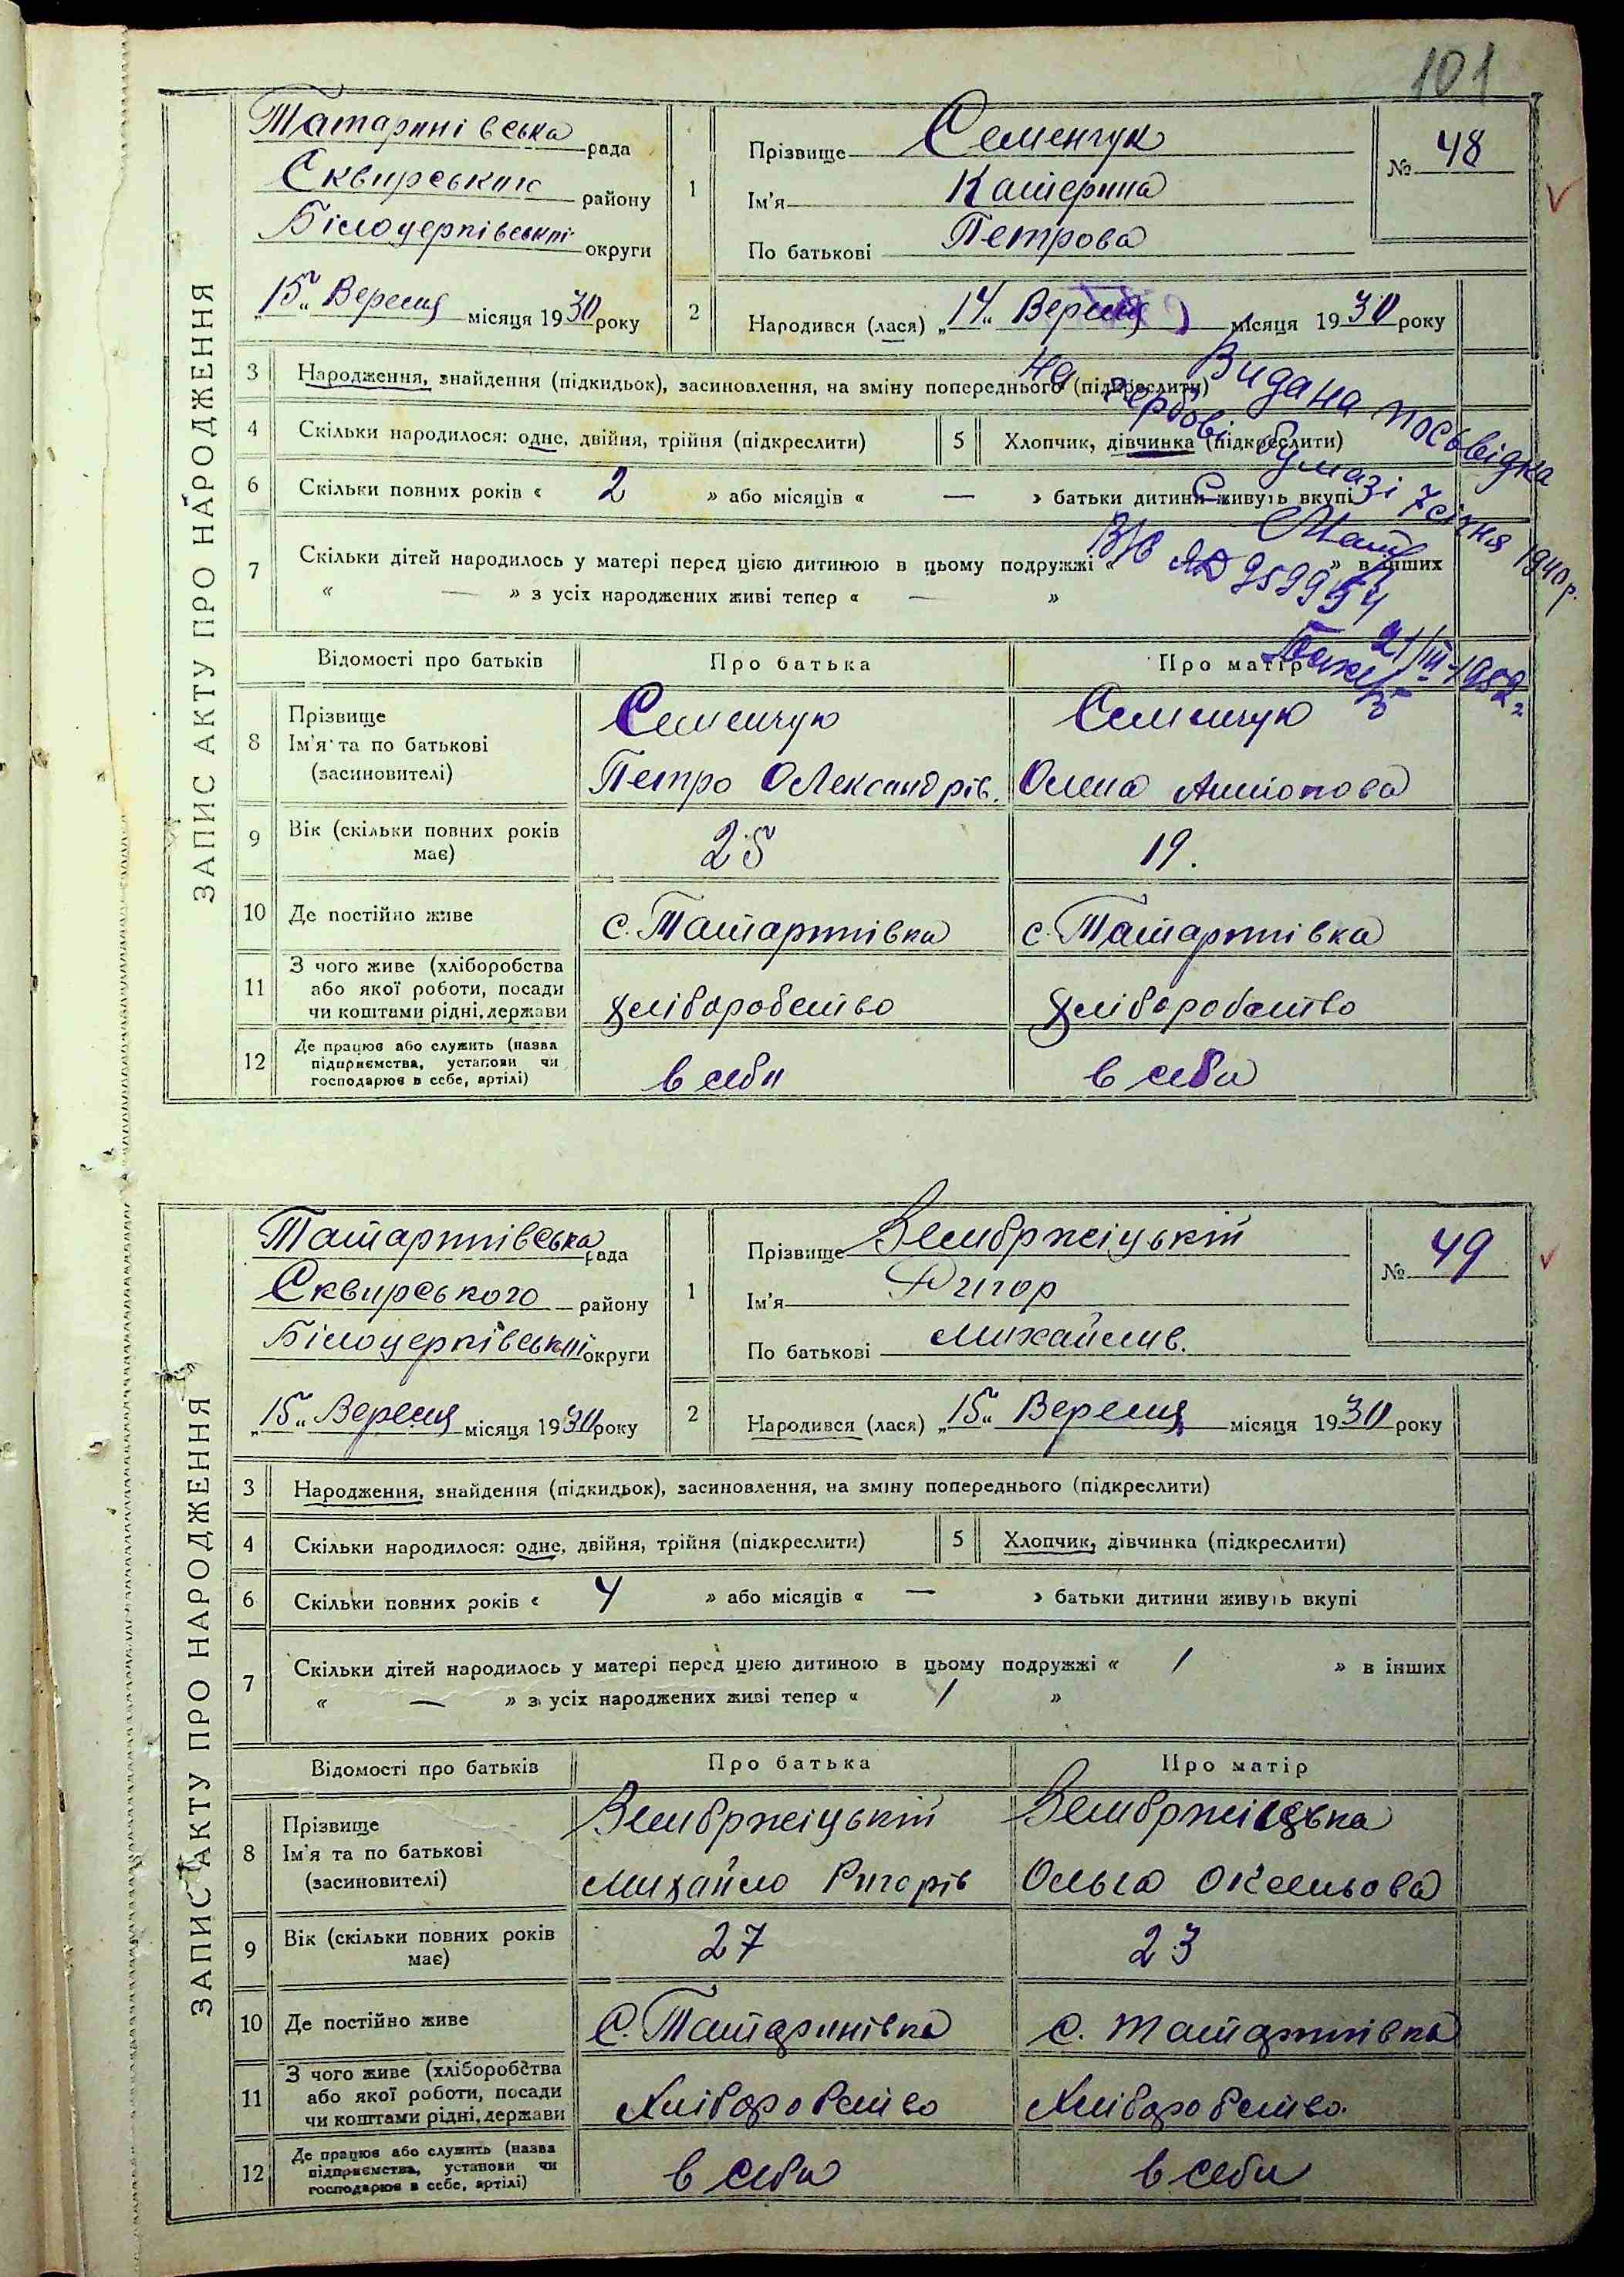 101
ЗАПИС АКТУ ПРО НАРОДЖЕННЯ
Татаринівська рада
Сквирського району
Білоцерківської округи
„15“ Вересня місяця 1930 року
1
Прізвище Семенчук
Ім'я Катерина
По батькові Петрова
№ 48
2
Народився (лася) „14“ Вересня місяця 1930 року
3 Народження, знайдення (підкидьок), засиновлення, на зміну попереднього (підкреслити)
4 Скільки народилося: одне, двійня, трійня (підкреслити)
5 Хлопчик, дівчинка (підкреслити)
6 Скільки повних років « 2 » або місяців « — » батьки дитини живуть вкупі
7 Скільки дітей народилось у матері перед цією дитиною в цьому подружжі « » в інших
« — » з усіх народжених живі тепер « — »
Видана посвідка
на гербові бумазі 7 січня 1940 р.
21/III-1952 г
Відомості про батьків Про батька Про матір
8 Прізвище
Ім'я та по батькові
(засновителі)
Семенчук
Петро Олександрів.
Семенчук
Олена Антонова
9 Вік (скільки повних років
має)
25
19.
10 Де постійно живе
с. Татаринівка
с. Татаринівка
11 З чого живе (хліборобства
або якої роботи, посади
чи коштами рідні, держави
хліборобство
хліборобство
12 Де працює або служить (назва
підприємства, установи чи
господарює в себе, артілі)
в себи
в себи
ЗАПИС АКТУ ПРО НАРОДЖЕННЯ
Татаринівська рада
Сквирського району
Білоцерківської округи
„15“ Вересня місяця 1930 року
1
Прізвище Зембржіцькій
Ім'я Ригор
По батькові Михайлив.
№ 49
2
Народився (лася) „15“ Вересня місяця 1930 року
3 Народження, знайдення (підкидьок), засиновлення, на зміну попереднього (підкреслити)
4 Скільки народилося: одне, двійня, трійня (підкреслити)
5 Хлопчик, дівчинка (підкреслити)
6 Скільки повних років « 4 » або місяців « — » батьки дитини живуть вкупі
7 Скільки дітей народилось у матері перед цією дитиною в цьому подружжі « 1 » в інших
« — » з усіх народжених живі тепер « 1 »
Відомості про батьків Про батька Про матір
8 Прізвище
Ім'я та по батькові
(засиновителі)
Зембржіцькій
Михайло Ригорів
Зембржіцька
Ольга
9 Вік (скільки повних років
має)
27
23
10 Де постійно живе
С. Татаринівка
с. Татаринівка
11 З чого живе (хліборобства
або якої роботи, посади
чи коштами рідні, держави
Хліборобство
Хліборобство.
12 Де працює або служить (назва
підприємства, установи чи
господарює в себе, артілі)
в себи
в себи